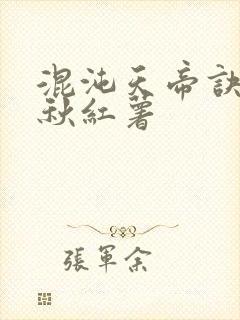 混沌天帝訣
秋紅薯
張軍余